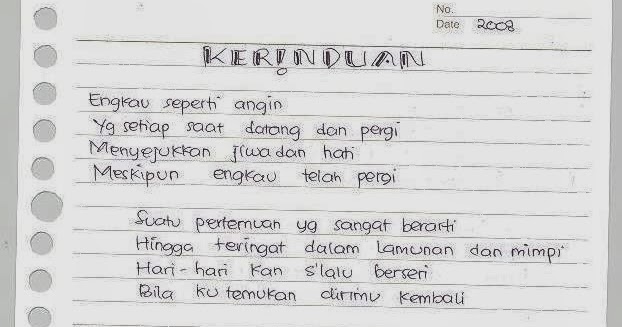 No.
Date 2008
KERINDUAN
Engkau seperti angin
Yg setiap saat datang dan pergi
Menyejukkan jiwa dan hati
Meskipun engkau telah pergi
Suatu pertemuan yg sangat berarti
Hingga teringat dalam lamunan dan mimpi
Hari-hari kan s'lalu berseri
Bila ku temukan dirimu kembali